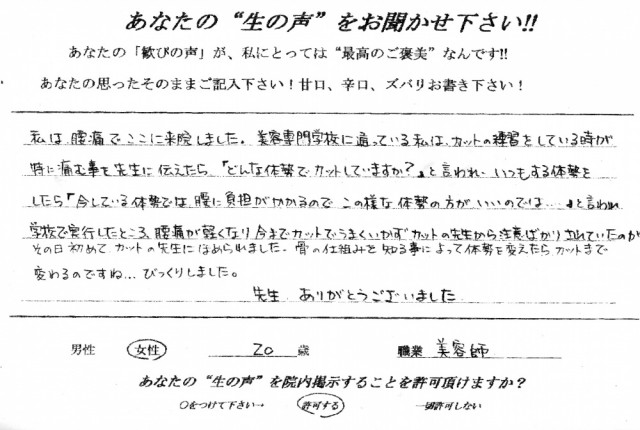 あなたの “生の声” をお聞かせ下さい!!
あなたの「歓びの声」が、私にとっては “最高のご褒美” なんです!!
あなたの思ったそのままご記入下さい！甘口、辛口、ズバリお書き下さい！
私は、腰痛でここに来院しました。美容専門学校に通っている私は、カットの練習をしている時が
特に痛む事を先生に伝えたら、「どんな体勢でカットしていますか？」と言われ、いつもする体勢を
したら「今している体勢では、腰に負担がかかるので この様な体勢の方がいいのでは…」と言われ
学校で実行したところ、腰痛が軽くなり 今までカットでうまくいかずカットの先生から注意ばかりされていたのが
その日初めてカットの先生にほめられました。骨の仕組みを知る事によって体勢を変えたらカットまで
変わるのですね…びっくりしました。
先生 ありがとうございました
男性 女性 20 歳 職業 美容師
あなたの “生の声” を院内掲示することを許可頂けますか？
○をつけて下さい→ 許可する 一切許可しない